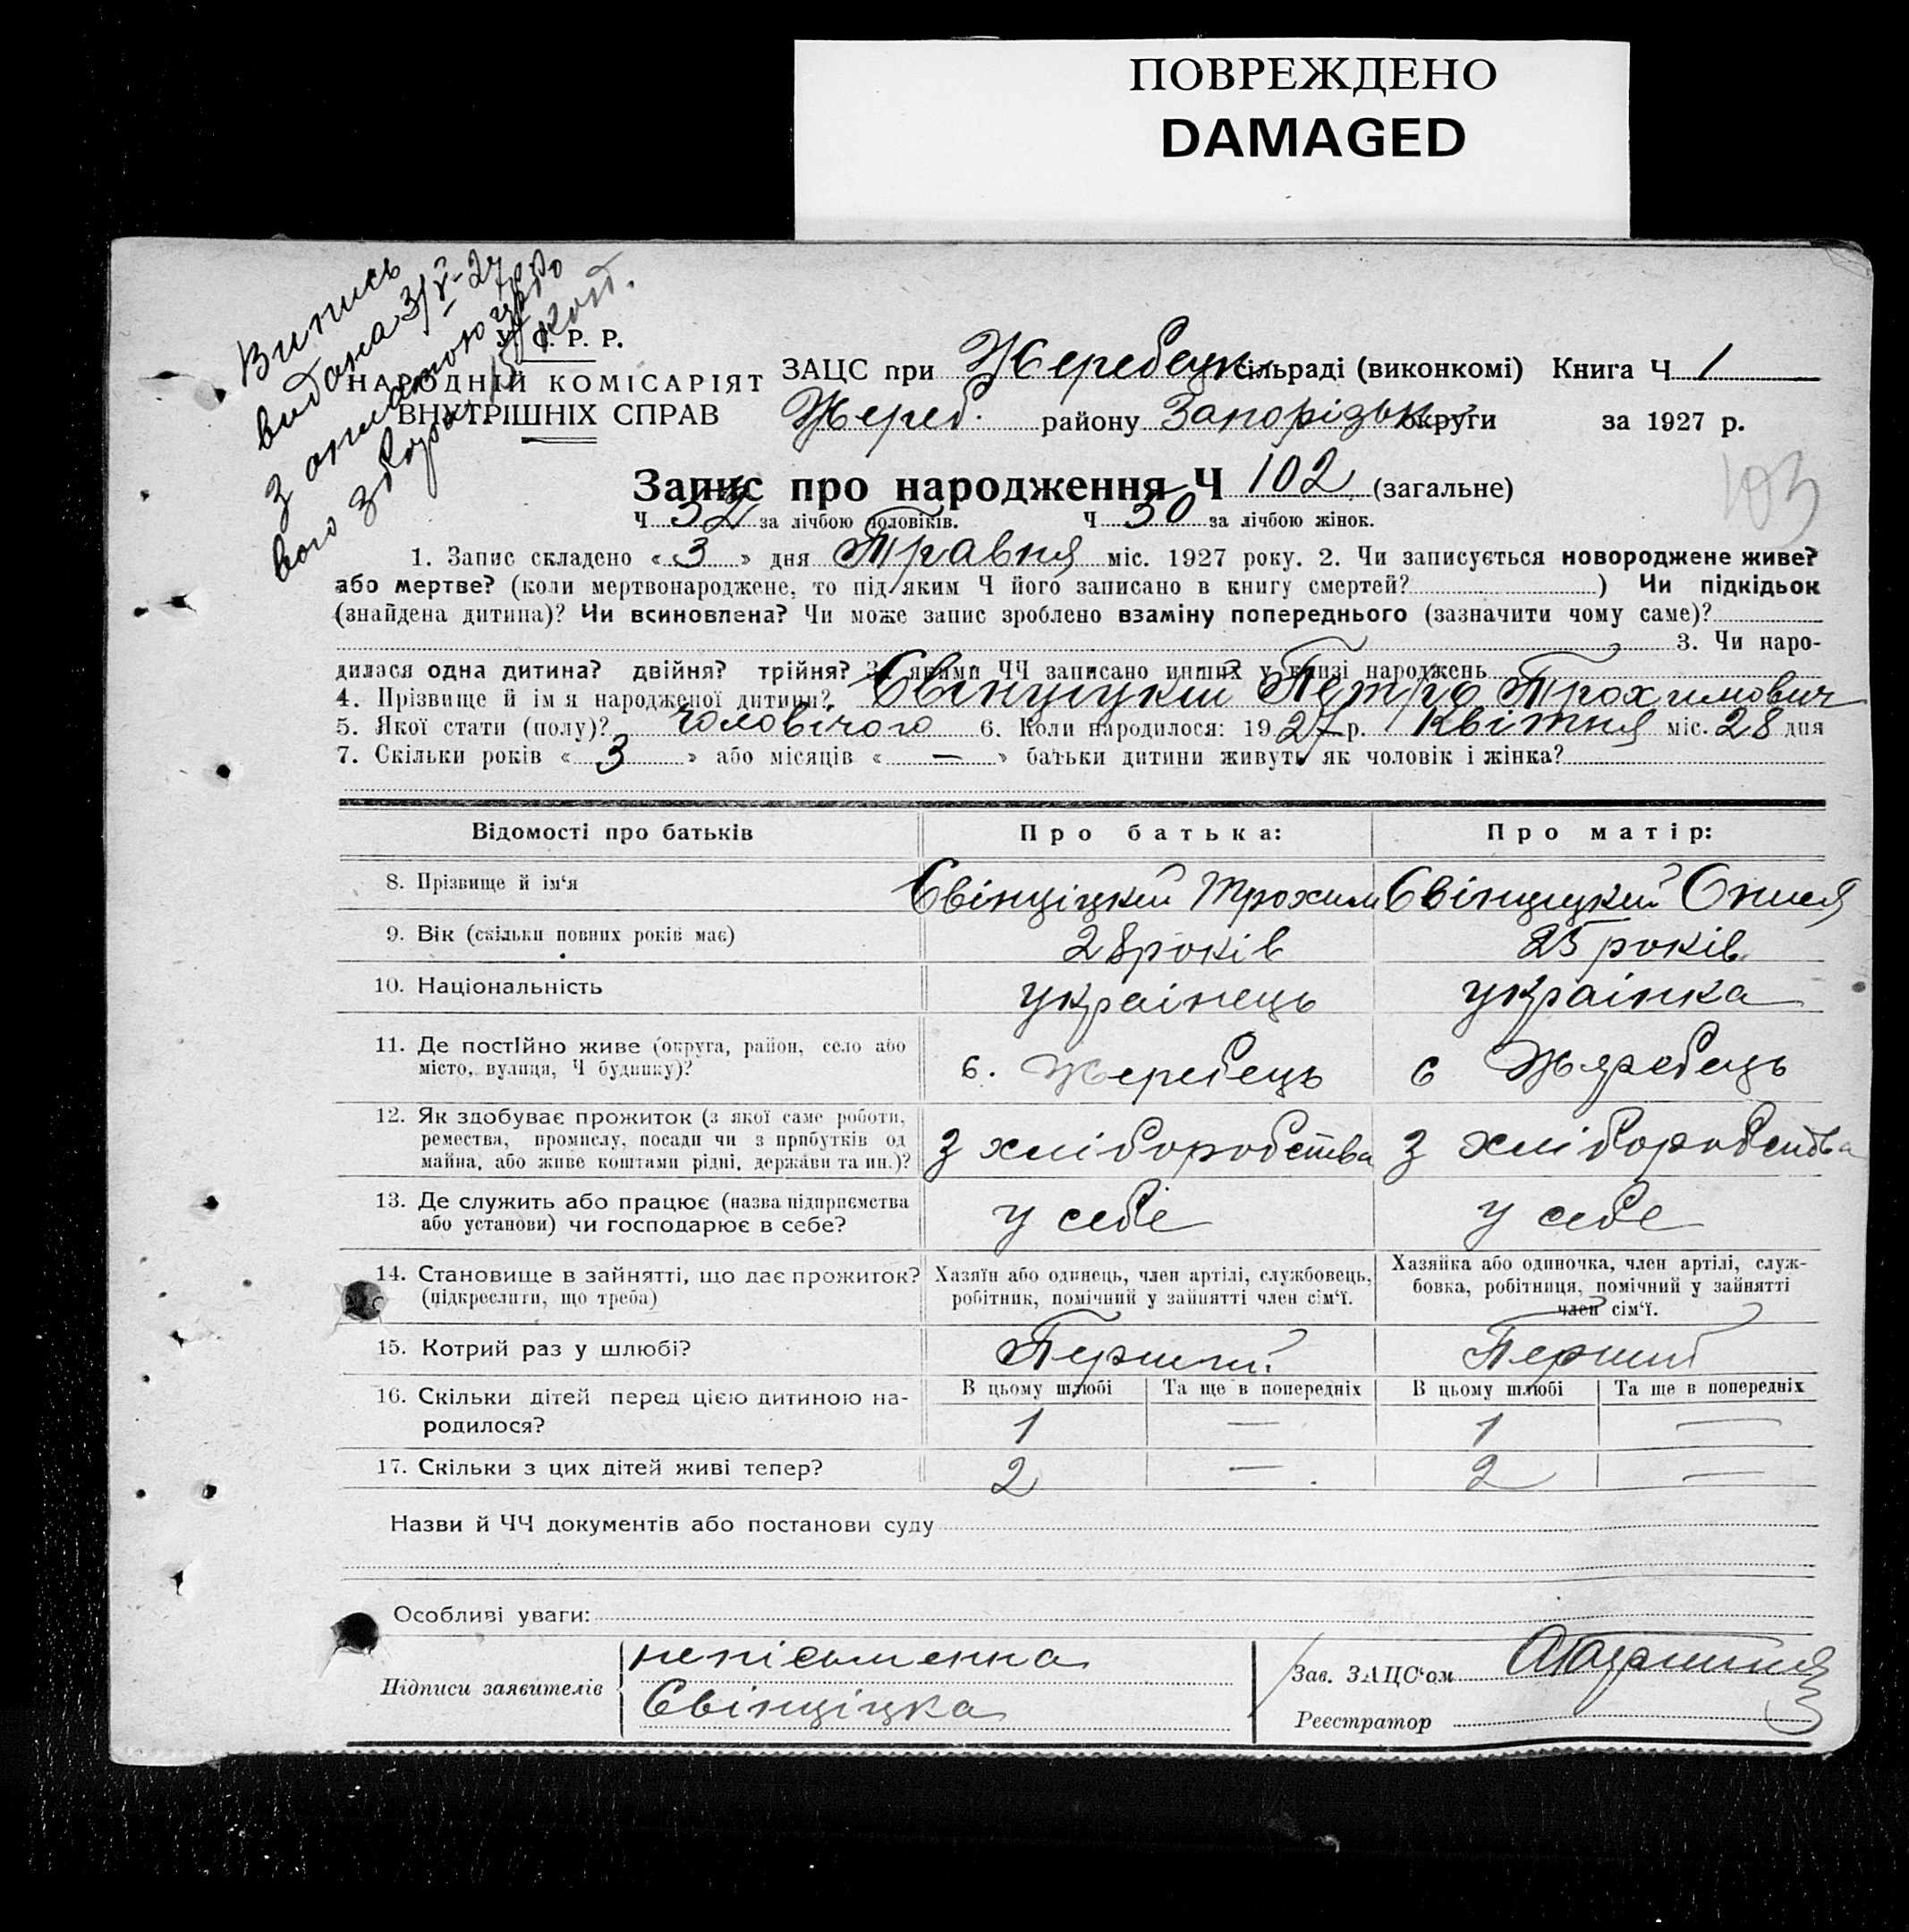 ПОВРЕЖДЕНО
DAMAGED
Випись
видана 3/V-27р
з оплатою
вого збору коп.
У. С. Р. Р.
НАРОДНІЙ КОМІСАРІЯТ
ВНУТРІШНІХ СПРАВ
ЗАЦС при Жеребецьк сільраді (виконкомі) Книга Ч 1
Жереб. району Запорізьк округи за 1927 р.
Запис про народження Ч 102 (загальне)
103
Ч 52 за лічбою чоловіків. Ч 50 за лічбою жінок.
1. Запис складено « 3 » дня Травня міс. 1927 року. 2. Чи записується новороджене живе?
або мертве? (коли мертвонароджене, то під яким Ч його записано в книгу смертей? ) Чи підкідьок
(знайдена дитина)? Чи всиновлена? Чи може запис зроблено взаміну попереднього (зазначити чому саме)?
3. Чи наро-
дилася одна дитина? двійня? трійня? За якими ЧЧ записано инших у книзі народжень
4. Прізвище й ім я народженої дитини? Свінціцкий Петро Трохимович
5. Якої стати (полу)? чоловічого 6. Коли народилося: 1927 р. Квітня міс. 28 дня
7. Скільки років « 3 » або місяців « — » батьки дитини живуть як чоловік і жінка?
Відомості про батьків Про батька: Про матір:
8. Прізвище й ім‘я Свінціцкий Трохим Свінціцкий Онися
9. Вік (скільки повних років має) 28 років 25 років
10. Національність українець українка
11. Де постІйно живе (округа, район, село або
місто, вулиця, Ч будинку)? с. Жеребець с Жяребець
12. Як здобуває прожиток (з якої саме роботи,
ремества, промислу, посади чи з прибутків од
майна, або живе коштами рідні, держави та ин.)? З хліборобства З хліборобства
13. Де служить або працює (назва підприємства
або установи) чи господарює в себе? у себе у себе
14. Становище в зайнятті, що дає прожиток?
(підкреслити, що треба)
Хазяїн або одинець, член артілі, службовець,
робітник, помічний у зайнятті член сім‘ї.
Хазяйка або одиночка, член артілі, служ-
бовка, робітниця, помічний у зайнятті
член сім‘ї.
15. Котрий раз у шлюбі? Перший Перший
16. Скільки дітей перед цією дитиною на-
родилося?
В цьому шлюбі Та ще в попередніх В цьому шлюбі Та ще в попередніх
1 — 1 —
17. Скільки з цих дітей живі тепер? 2 — 2 —
Назви й ЧЧ документів або постанови суду
Особливі уваги:
Підписи заявителів
непісьменна
Свінціцка
Зав. ЗАЦС‘ом
Реєстратор